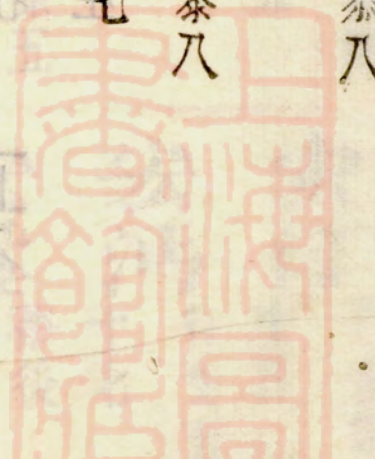 八
八
七
上海圖
書館藏